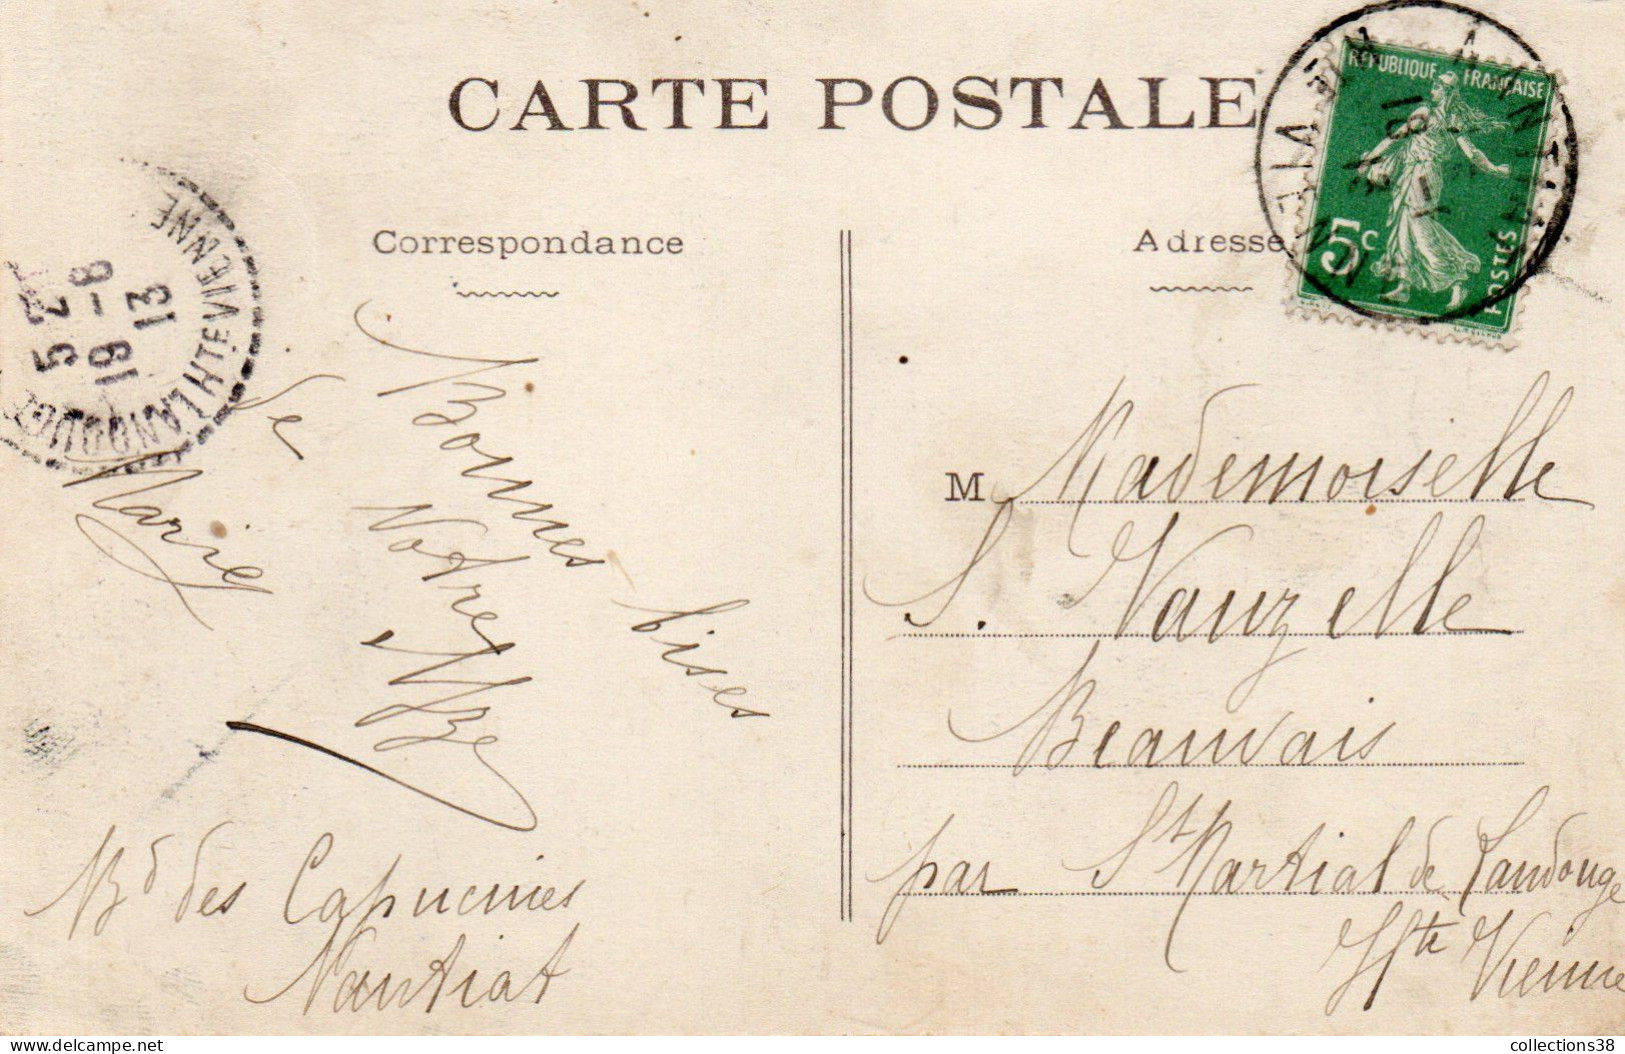 CARTE POSTALE
RÉPUBLIQUE FRANÇAISE
5c
POSTES
Correspondance
Adresse
5 Z
19-8
13
LANDOUGE HTE VIENNE
Bonnes bises
de Notre Mze
Marie
Bd des Capucines
Nantiat
M Mademoiselle
S. Vauzelle
Beauvais
par St Martial de Landouge
Hte Vienne
collections38